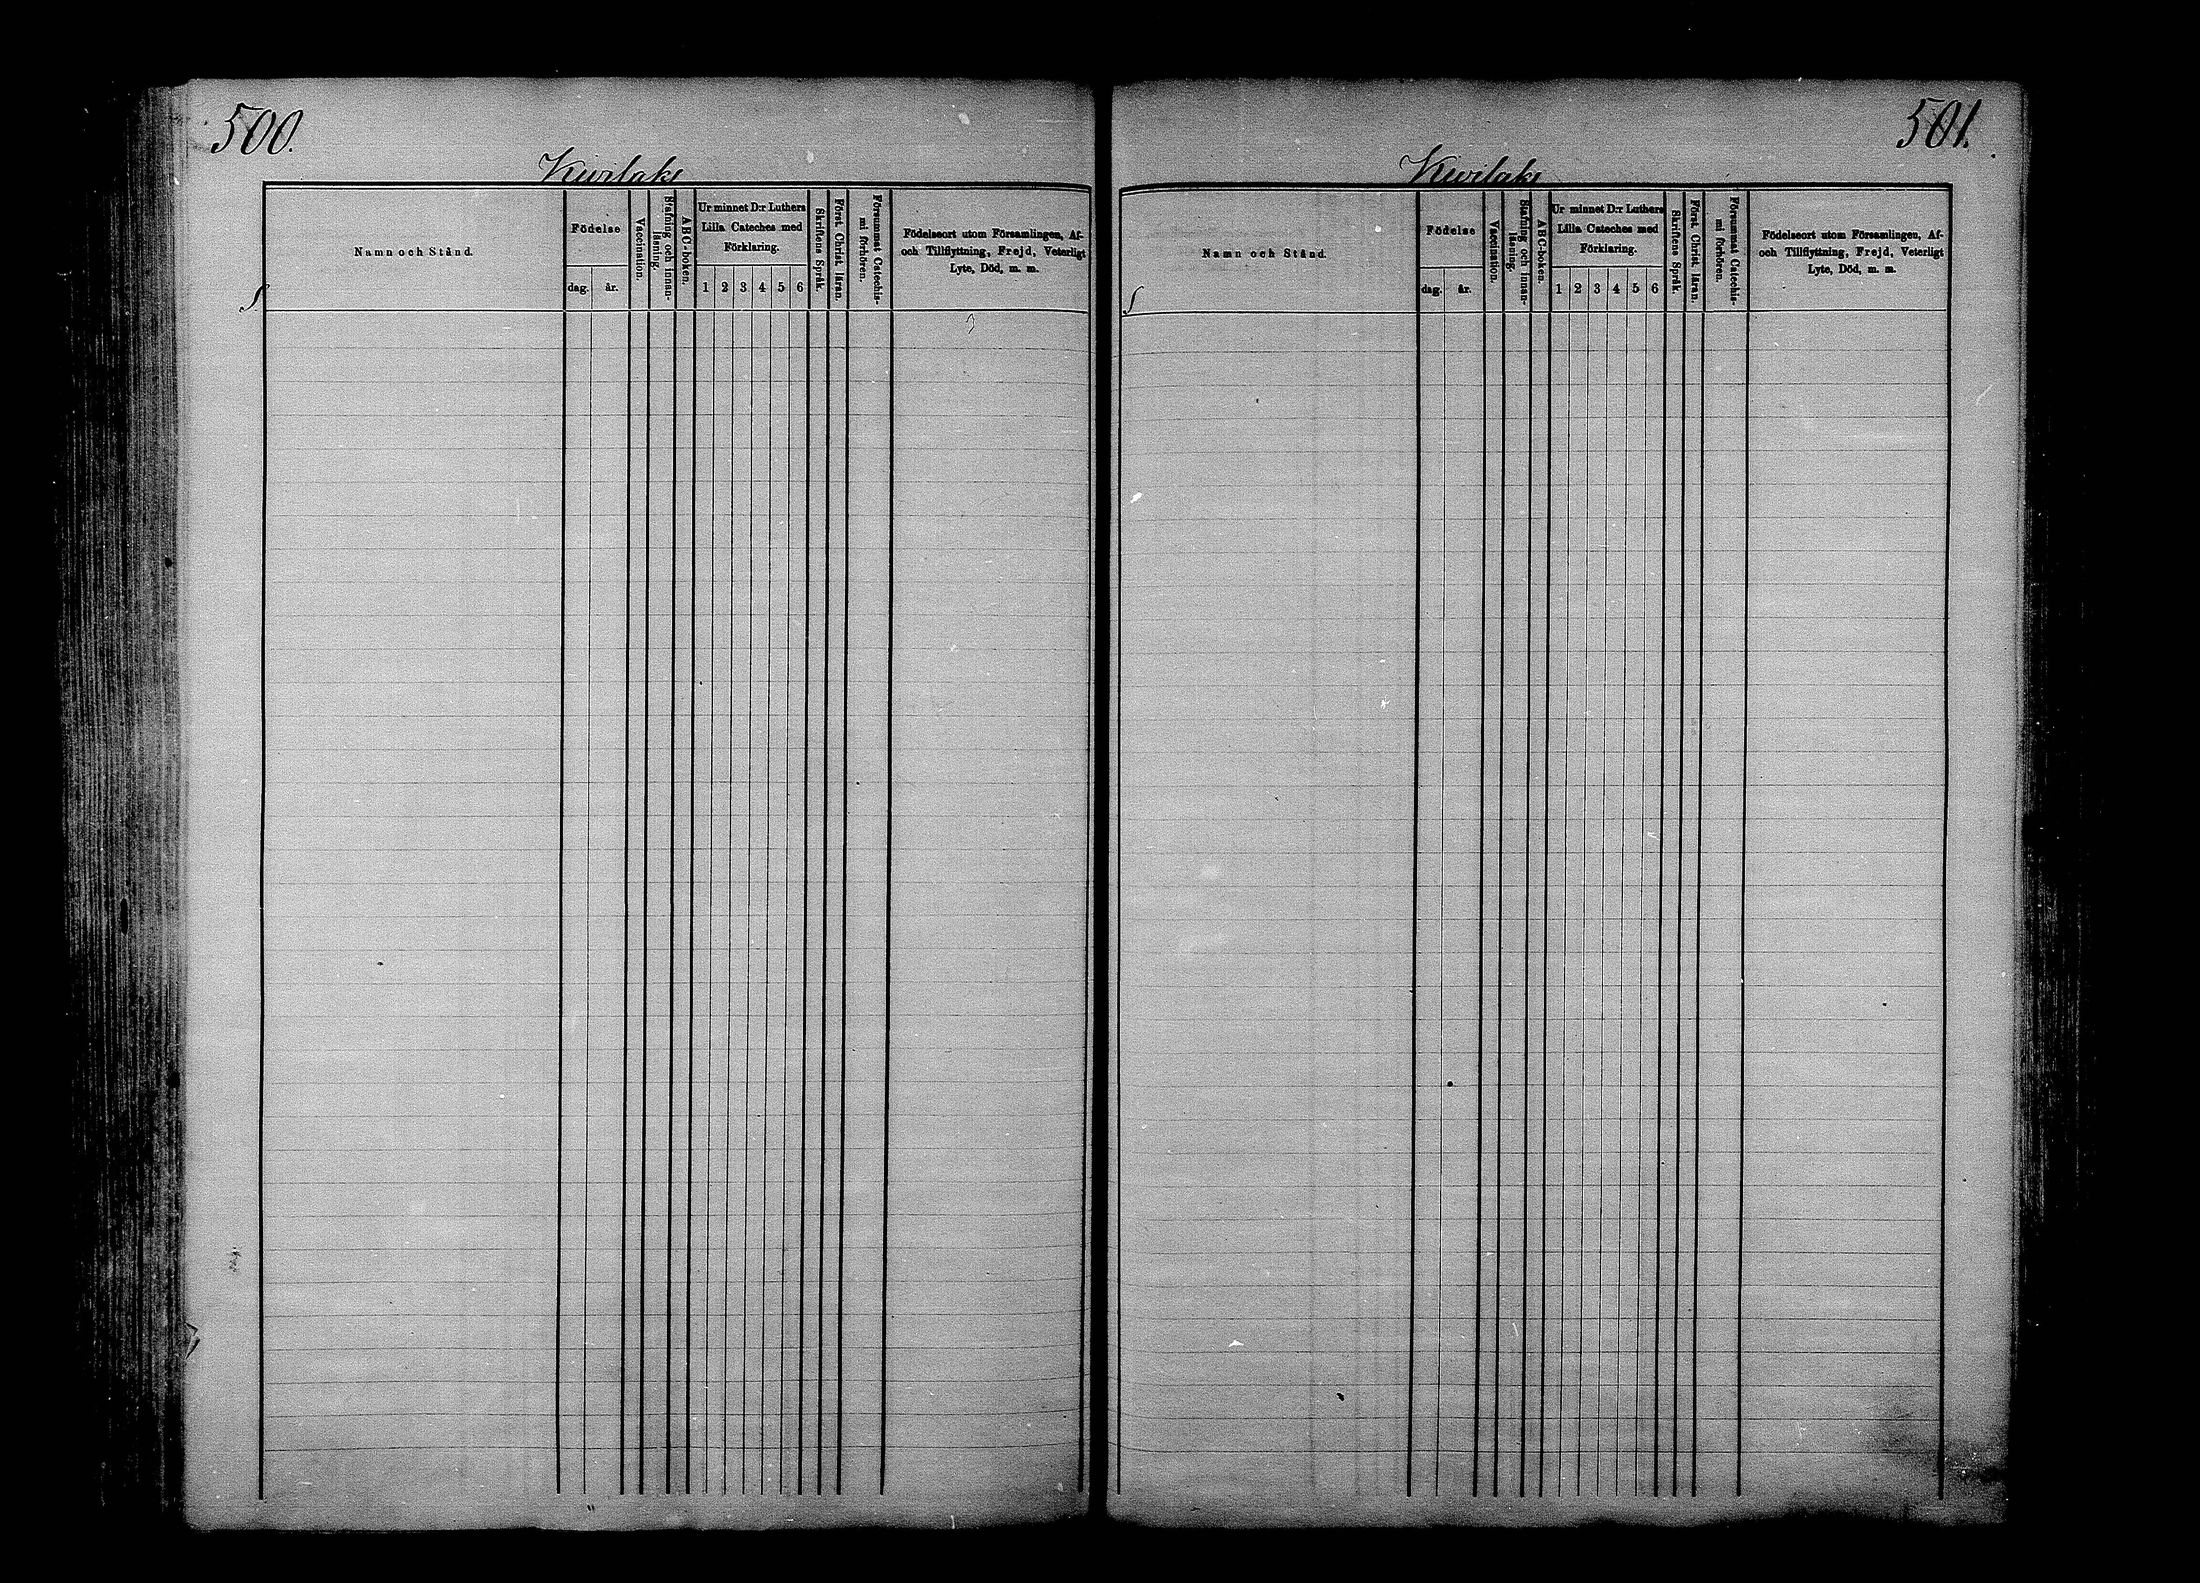 500.
Kivilaks
Namn och Stånd.
Födelse
dag.
år.
Vaccination.
Stafning och innan-
läsning.
ABC-boken.
Ur minnet D:r Luthers
Lilla Cateches med
Förklaring.
1 2 3 4 5 6
Skriftens Språk.
Först. Christ. läran.
Försummat Catechis-
mi förhören.
Födelseort utom Församlingen, Af-
och Tillflyttning, Frejd, Veterligt
Lyte, Död, m. m.
501.
Kivilaks
Namn och Stånd.
Födelse
dag.
år.
Vaccination.
Stafning och innan-
läsning.
ABC-boken.
Ur minnet D:r Luthers
Lilla Cateches med
Förklaring.
1 2 3 4 5 6
Skriftens Språk.
Först. Christ. läran.
Försummat Catechis-
mi förhören.
Födelseort utom Församlingen, Af-
och Tillflyttning, Frejd, Veterligt
Lyte, Död, m. m.